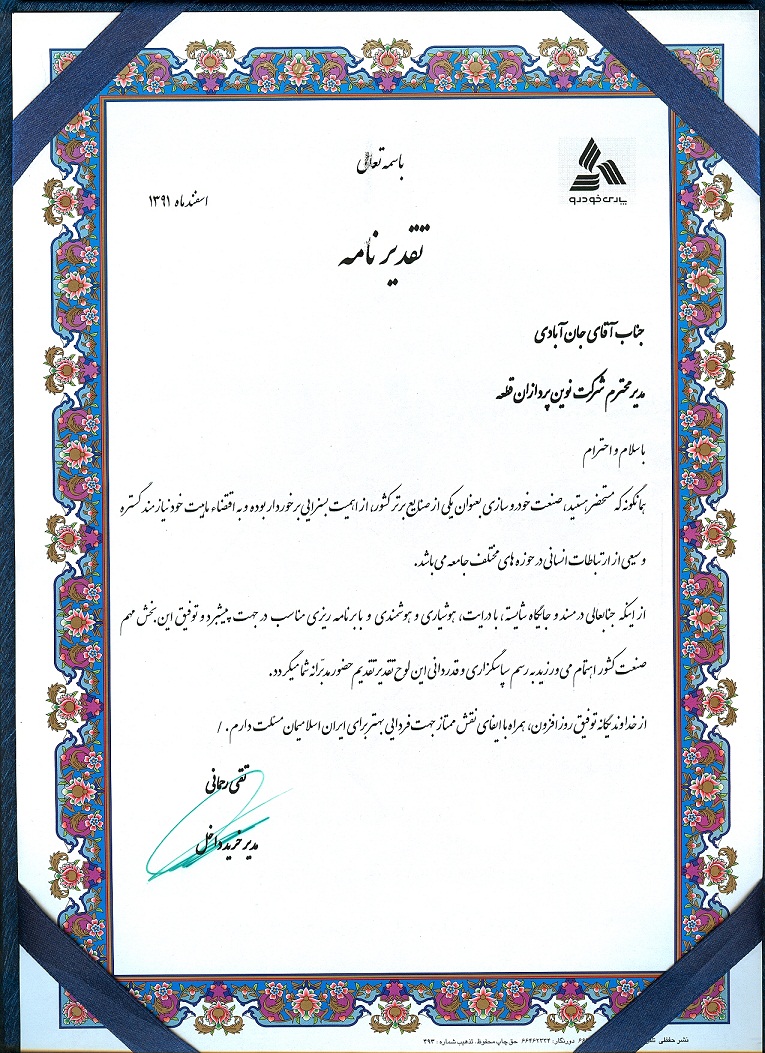 باسمه تعالی
پارس خودرو
اسفندماه ۱۳۹۱
تقدیر نامه
جناب آقای جان آبادی
مدیر محترم شرکت نوین پردازان قطعه
باسلام و احترام
همانگونه که مستحضر هستید، صنعت خودرو سازی بعنوان یکی از صنایع برتر کشور، از اهمیت بسزایی برخوردار بوده و به اقتضاء ماهیت خود نیازمند گستره
وسیعی از ارتباطات انسانی در حوزه های مختلف جامعه می باشد.
از اینکه جنابعالی در مسند و جایگاه شایسته، با درایت، هوشیاری و هوشمندی و با برنامه ریزی مناسب در جهت پیشبرد و توفیق این بخش مهم
صنعت کشور اهتمام می ورزید به رسم سپاسگزاری و قدردانی این لوح تقدیر تقدیم حضور مدبّرانه شما میگردد.
از خداوند یگانه توفیق روز افزون، همراه با ایفای نقش ممتاز جهت فردایی بهتر برای ایران اسلامیمان مسئلت دارم . /
تقی رحمانی
مدیر خرید داخل
نشر حفظی دورنگار: ۶۶۴۶۲۳۳۴ حق چاپ محفوظ. تذهیب شماره: ۳۹۳